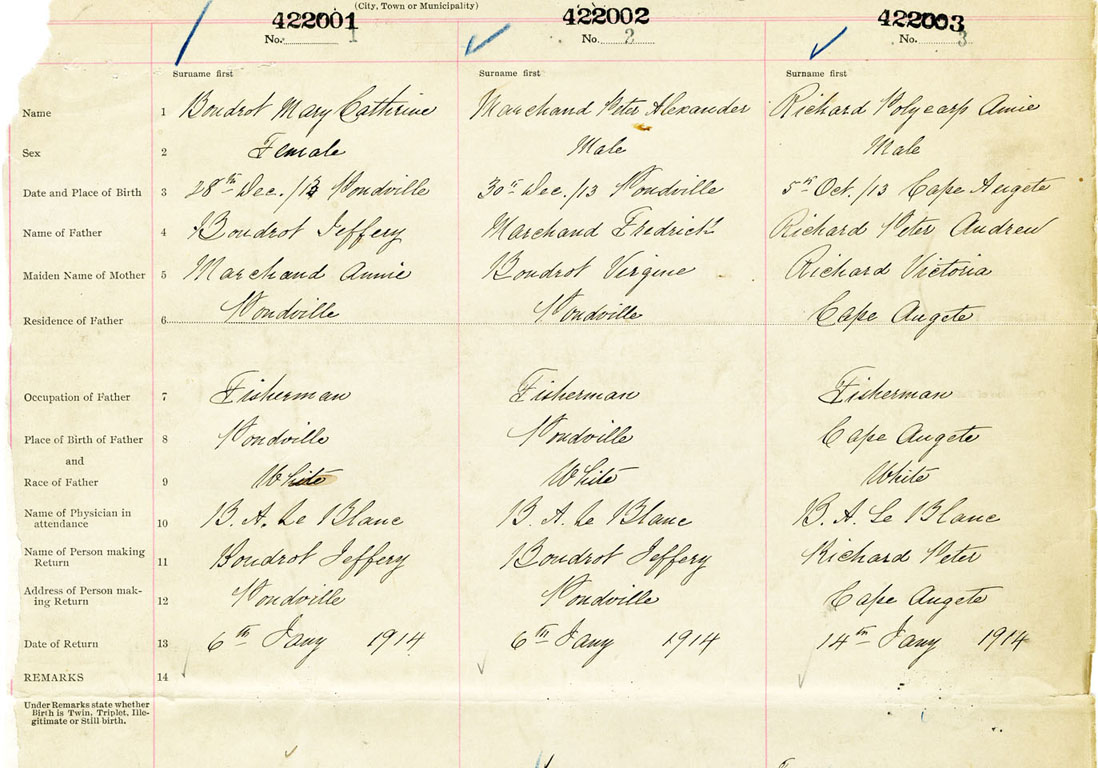 (City, Town or Municipality)
422001 422002 422003
No. 1 No. 2 No. 3
Surname first Surname first Surname first
Name 1 Boudrot Mary Catherine Marchand Peter Alexander Richard Polycarp Amie
Sex 2 Female Male Male
Date and Place of Birth 3 28th Dec./13 Pondville 30th Dec./13 Pondville 5th Oct./13 Cape Augete
Name of Father 4 Boudrot Jeffery Marchand Fredrick Richard Peter Andrew
Maiden Name of Mother 5 Marchand Annie Boudrot Virgine Richard Victoria
Residence of Father 6 Pondville Pondville Cape Augete
Occupation of Father 7 Fisherman Fisherman Fisherman
Place of Birth of Father 8 Pondville Pondville Cape Augete
and
Race of Father 9 White White White
Name of Physician in attendance 10 B. A. Le Blanc B. A. Le Blanc B. A. Le Blanc
Name of Person making Return 11 Boudrot Jeffery Boudrot Jeffery Richard Peter
Address of Person mak-ing Return 12 Pondville Pondville Cape Augete
Date of Return 13 6th Jany 1914 6th Jany 1914 14th Jany 1914
REMARKS 14
Under Remarks state whether
Birth is Twin, Triplet, Ille-
gitimate or Still birth.